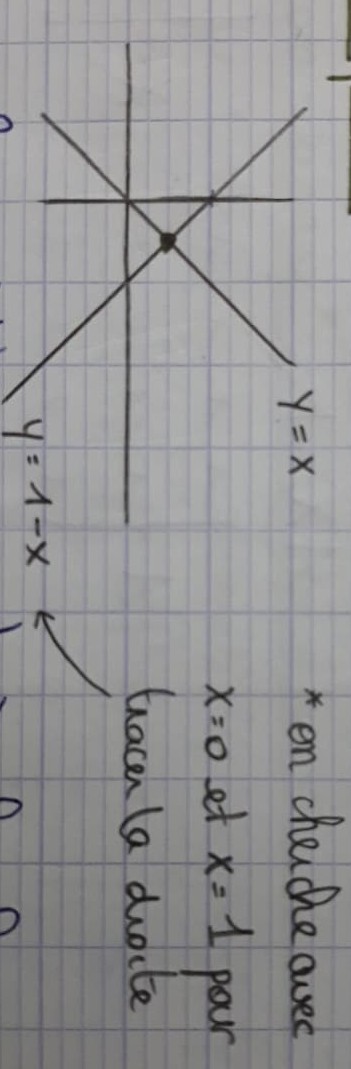 y = x
* on cherche avec
x = 0 et x = 1 pour
tracer la droite
y = 1 - x